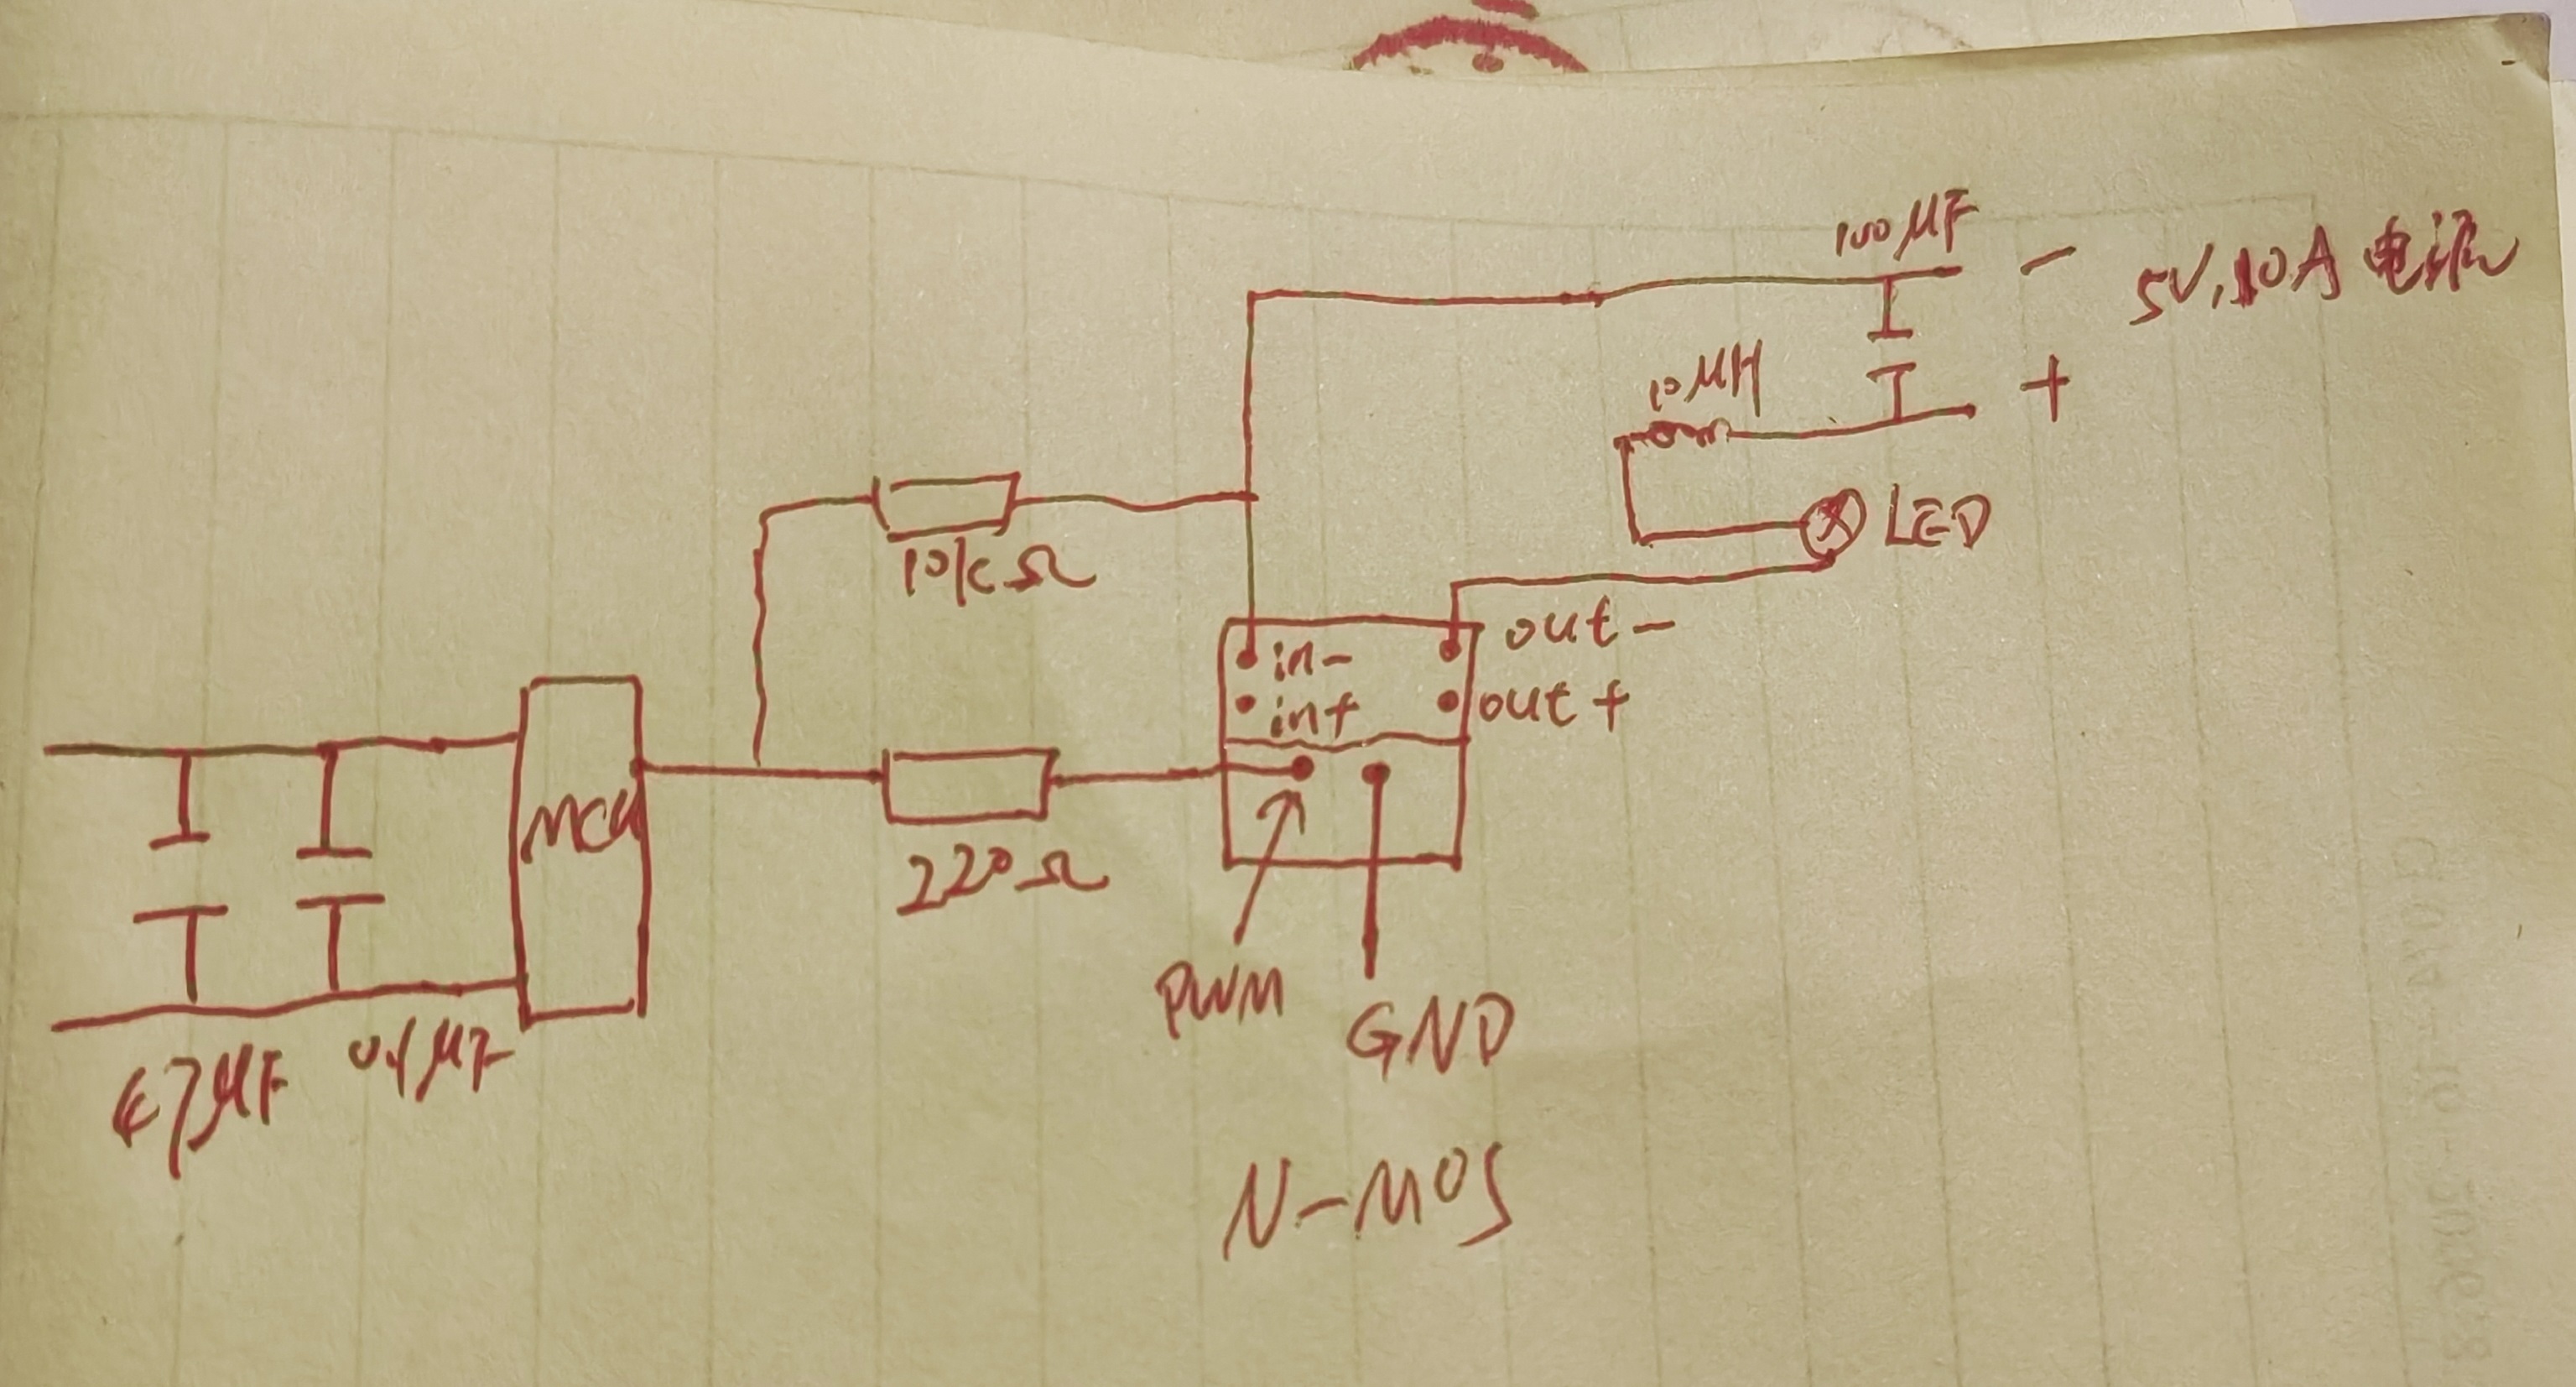 100μF
- 5V,10A 电源
10μH
+
LED
10kΩ
out-
in-
in+
out+
MCU
220Ω
PWM
GND
47μF
0.1μF
N-MOS